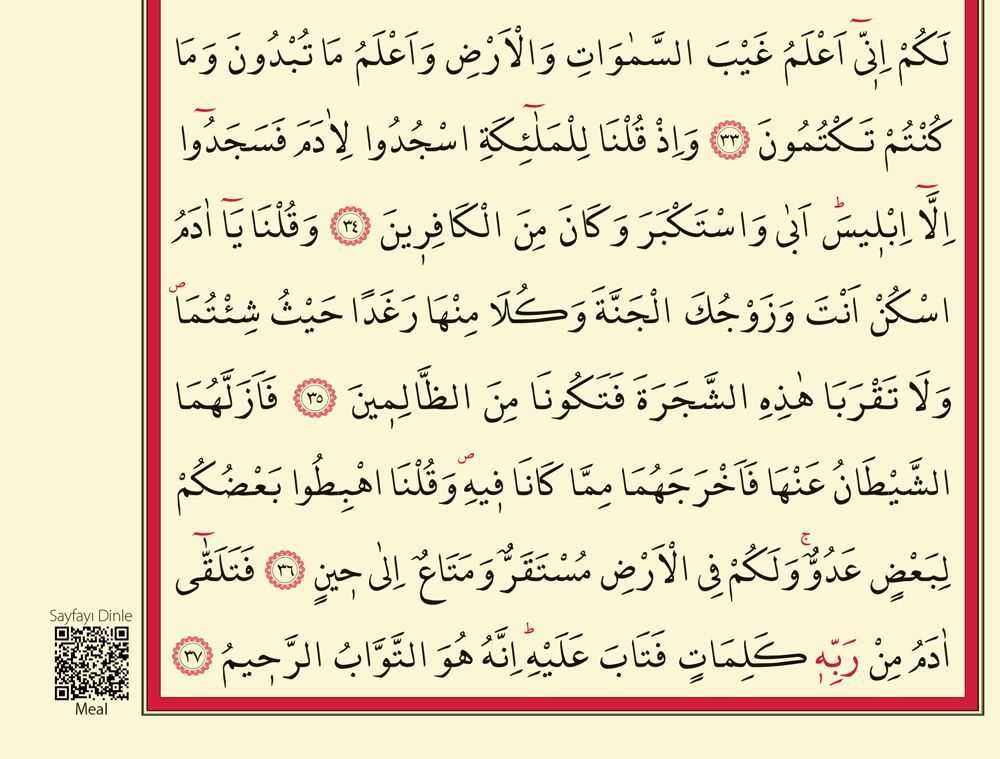 لَكُمْ اِنّ۪ٓي اَعْلَمُ غَيْبَ السَّمٰوَاتِ وَالْاَرْضِ وَاَعْلَمُ مَا تُبْدُونَ وَمَا
كُنْتُمْ تَكْتُمُونَ ﴿٣٣﴾ وَاِذْ قُلْنَا لِلْمَلٰٓئِكَةِ اسْجُدُوا لِاٰدَمَ فَسَجَدُٓوا
اِلَّٓا اِبْل۪يسَۜ اَبٰى وَاسْتَكْبَرَ وَكَانَ مِنَ الْكَافِر۪ينَ ﴿٣٤﴾ وَقُلْنَا يَٓا اٰدَمُ
اسْكُنْ اَنْتَ وَزَوْجُكَ الْجَنَّةَ وَكُلَا مِنْهَا رَغَدًا حَيْثُ شِئْتُمَاۖ
وَلَا تَقْرَبَا هٰذِهِ الشَّجَرَةَ فَتَكُونَا مِنَ الظَّالِم۪ينَ ﴿٣٥﴾ فَاَزَلَّهُمَا
الشَّيْطَانُ عَنْهَا فَاَخْرَجَهُمَا مِمَّا كَانَا ف۪يهِۖ وَقُلْنَا اهْبِطُوا بَعْضُكُمْ
لِبَعْضٍ عَدُوٌّۚ وَلَكُمْ فِي الْاَرْضِ مُسْتَقَرٌّ وَمَتَاعٌ اِلٰى ح۪ينٍ ﴿٣٦﴾ فَتَلَقّٰٓى
اٰدَمُ مِنْ رَبِّه۪ كَلِمَاتٍ فَتَابَ عَلَيْهِۜ اِنَّهُ هُوَ التَّوَّابُ الرَّح۪يمُ ﴿٣٧﴾
Sayfayı Dinle
Meal